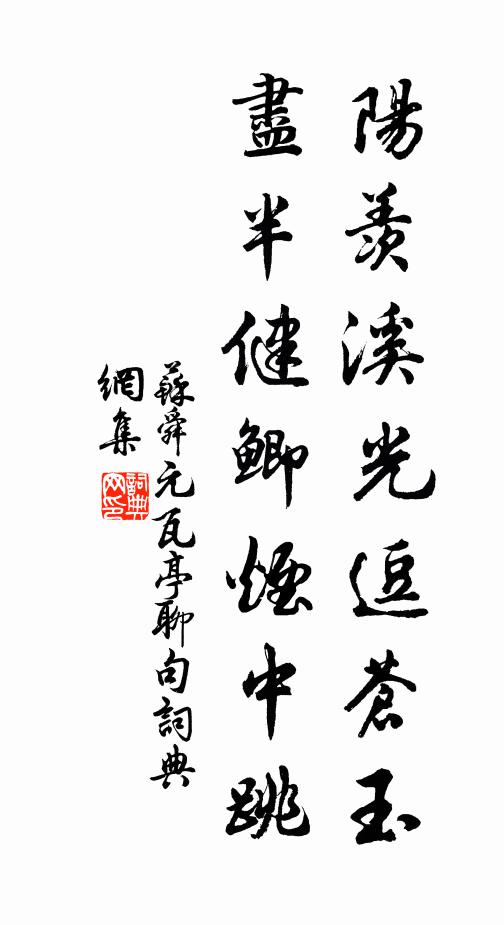 陽羨溪光逗蒼玉
盡半健鯽煙中跳
蘇舜元瓦亭聊句詞典
網集
詞典网印